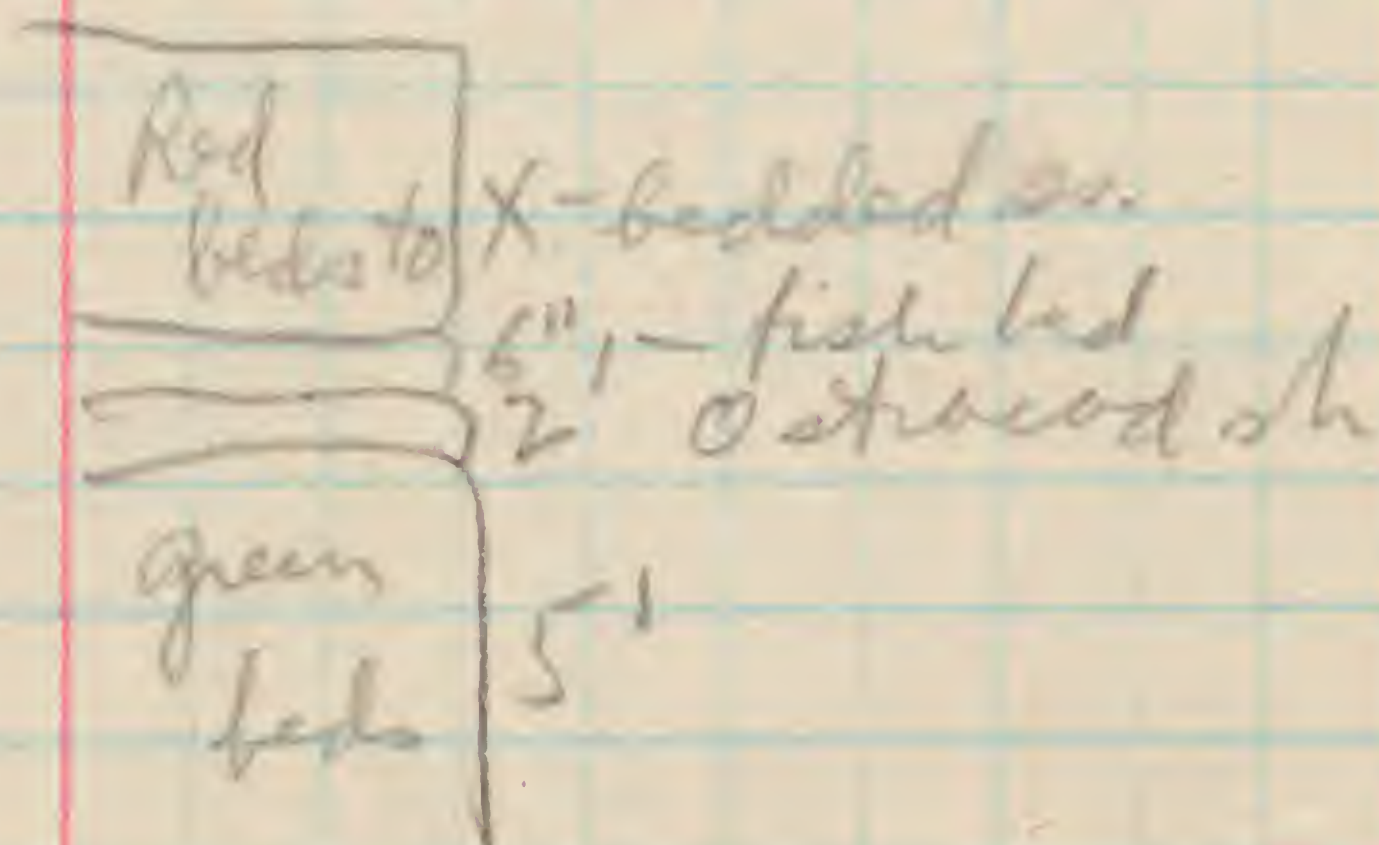 Red
beds to X-bedded ss.
6" - fish bed
2' Ostracod sh
green
beds
5'